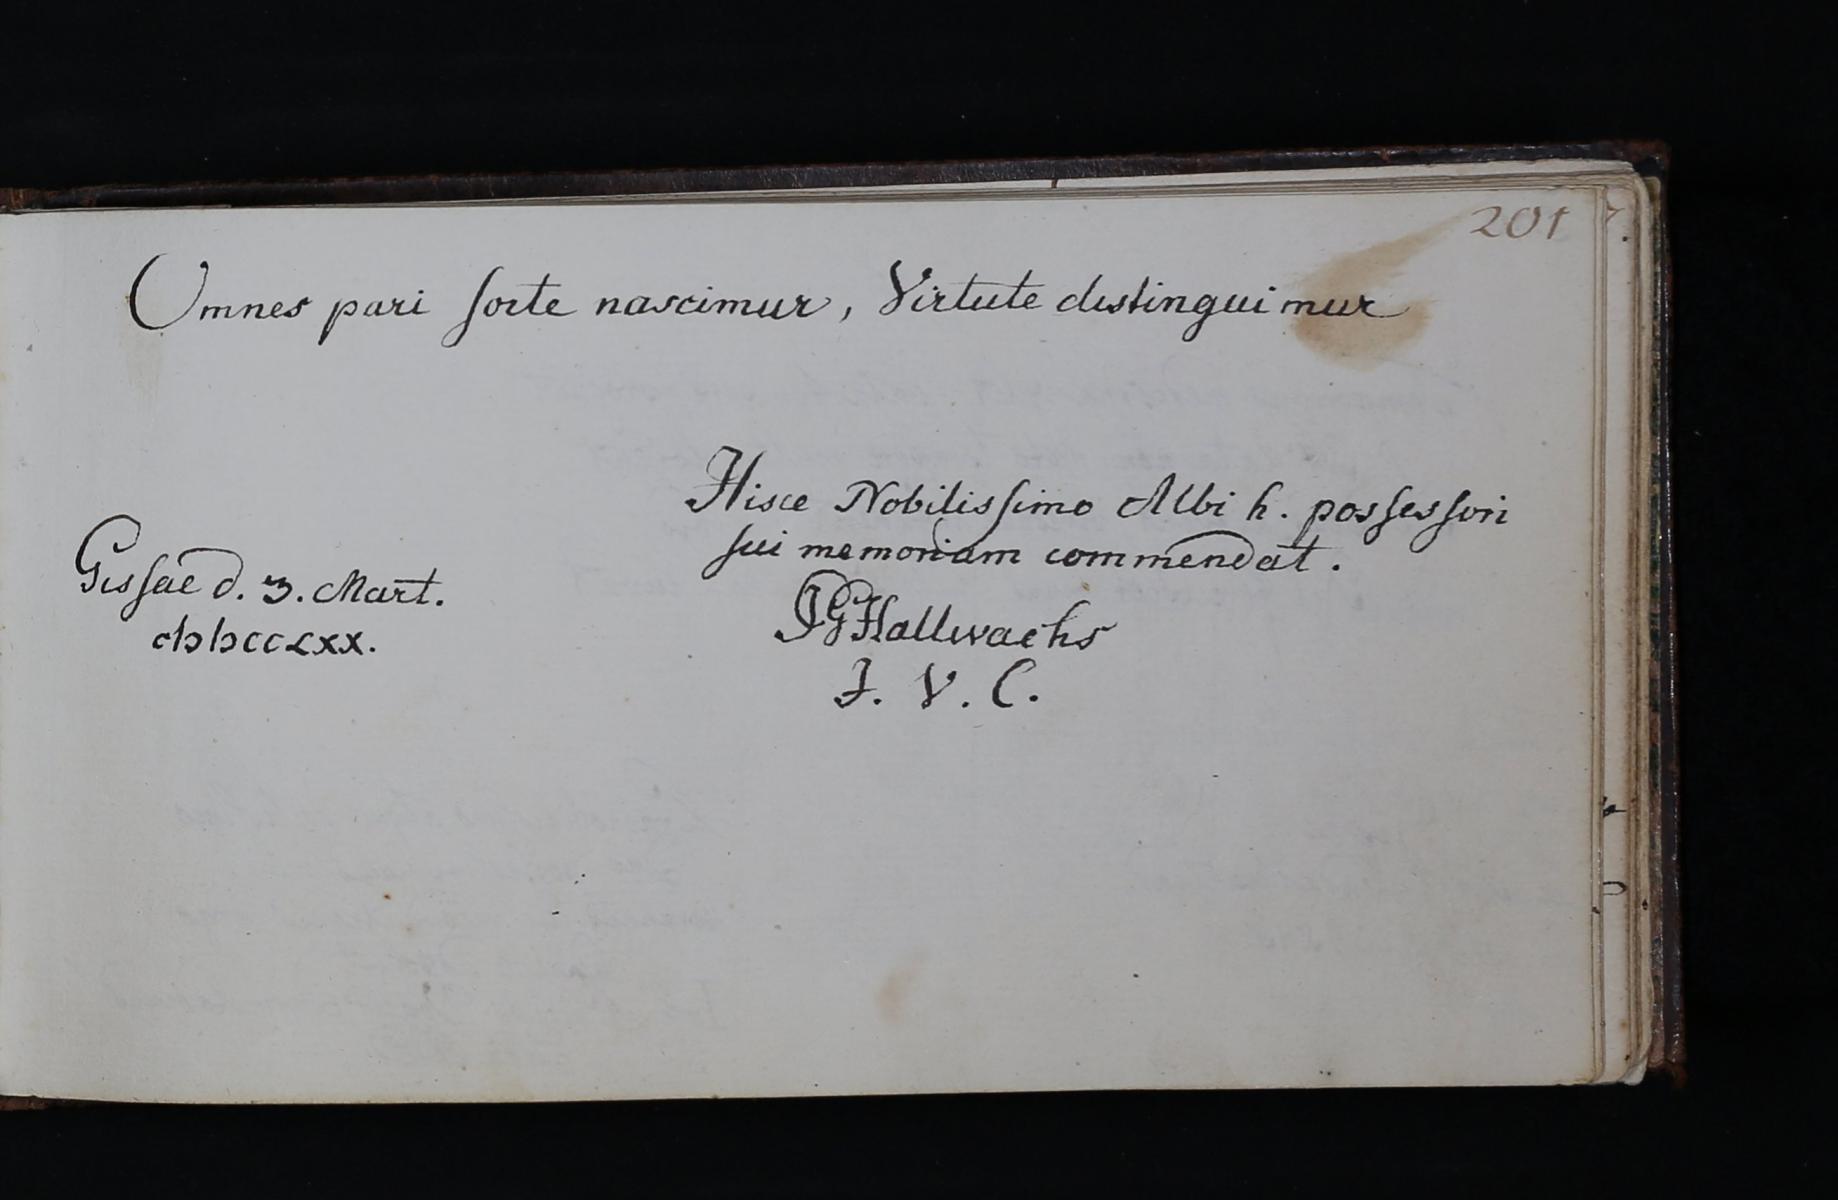 201
Omnes pari ſorte nascimur, Virtute distinguimur
Hisce Nobilisſimo Albi h. posſesſori
ſui memoriam commendat.
Gisſae d. 3. Mart.
cIↄ Iↄ cc Lxx.
JGHallwachs
J. V. C.